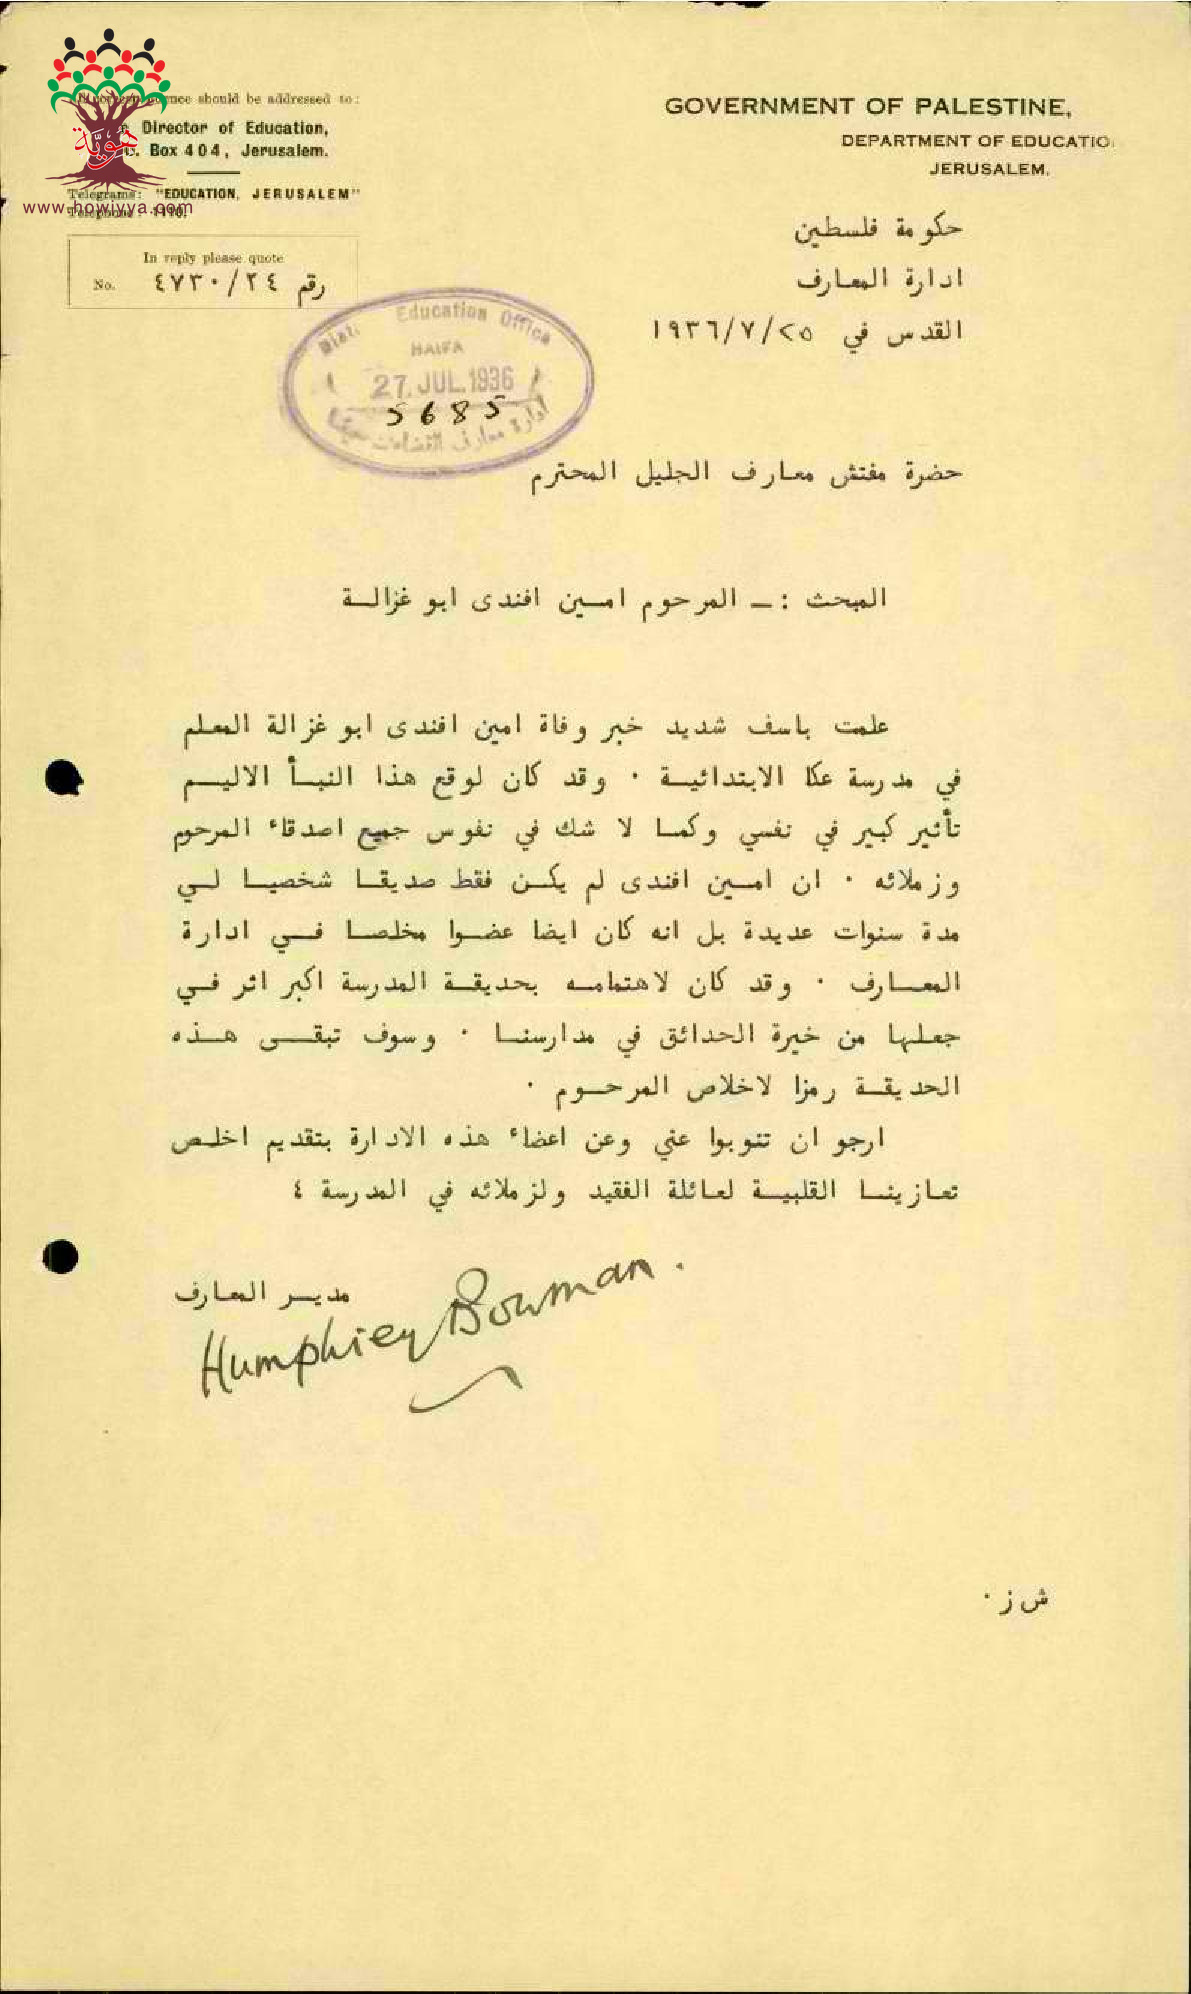 should be addressed to:
Director of Education,
Box 404, Jerusalem.
Telegrams: "EDUCATION, JERUSALEM"
Telephone: 1110.
www.howiyya.com
هويّة
In reply please quote
No. رقم ٤٧٣٠/٢٤
GOVERNMENT OF PALESTINE,
DEPARTMENT OF EDUCATIO
JERUSALEM.
حكومة فلسطين
ادارة المعارف
القدس في ٢٥/٧/١٩٣٦
Dist. Education Office
HAIFA
27 JUL 1936
5685
ادارة معارف
حضرة مفتش معارف الجليل المحترم
المبحث : ـ المرحوم امين افندى ابو غزالة
علمت باسف شديد خبر وفاة امين افندى ابو غزالة المعلم
في مدرسة عكا الابتدائية ٠ وقد كان لوقع هذا النبأ الاليم
تأثير كبير في نفسي وكما لا شك في نفوس جميع اصدقاء المرحوم
وزملائه ٠ ان امين افندى لم يكن فقط صديقا شخصيا لي
مدة سنوات عديدة بل انه كان ايضا عضوا مخلصا في ادارة
المعارف ٠ وقد كان لاهتمامه بحديقة المدرسة اكبر اثر في
جعلها من خيرة الحدائق في مدارسنا ٠ وسوف تبقى هذه
الحديقة رمزا لاخلاص المرحوم ٠
ارجو ان تنوبوا عني وعن اعضاء هذه الادارة بتقديم اخلص
تعازينا القلبية لعائلة الفقيد ولزملائه في المدرسة ٤
مدير المعارف
Humphrey Bowman.
ش ز ٠